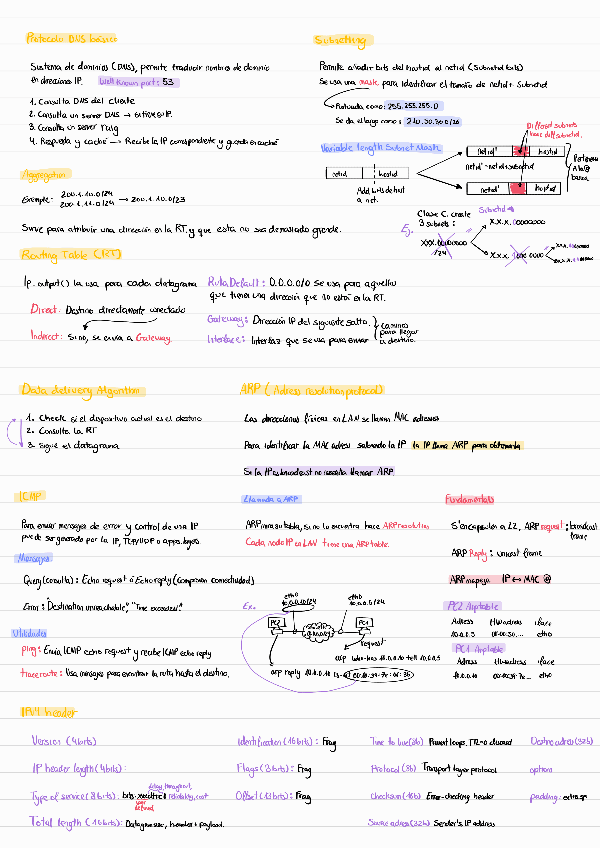 Protocolo DNS básico
Sistema de dominios (DNS), permite traducir nombres de dominio
en direcciones IP. Well known port: 53
1. Consulta DNS del cliente
2. Consulta un server DNS →
3. Consulta un server
4. Respuesta y caché → Recibe la IP correspondiente y guarda en caché
Aggregation
Exemple: 200.1.10.0/24
200.1.11.0/24 → 200.1.10.0/23
Sirve para atribuir una dirección en la RT. y que esta no sea demasiado grande.
Subnetting
Permite añadir bits del hostid al netid (Subnetid bits)
Se usa una mask para identificar el tamaño de netid + Subnetid
Rotada como: 255.255.255.0
Se da el largo como: 210.50.30.0/26
Variable length Subnet Mask
netid hostid
Add bits de host
a net.
netid' hostid
netid' = netid+subnetid
netid' hostid
Different subnets
have diff subnetid.
Ej.
Clase C, create
3 subnets:
XXX.00000000
/24
Subnetid
X.X.X.00000000
X.X.X.10000000
Routing Table (RT)
Ip.output() la usa para cada datagrama
Direct: Destino directamente conectado
Indirect: Si no, se envia a Gateway.
Ruta Default: 0.0.0.0/0 se usa para aquello
que tiene una dirección que no está en la RT.
Gateway: Dirección IP del siguiente salto.
Interface: Interfaz que se usa para enviar
caminos
para llegar
a destino.
Data delivery Algorithm
1. Check si el dispositivo actual es el destino
2. Consulta la RT
3. Sigue el datagrama
ARP (Adress resolution protocol)
Las direcciones físicas en LAN se llaman MAC adresses
Para identificar la MAC adress sabiendo la IP la IP llama ARP para obtenerla
Si la IP es broadcast no necesita llamar ARP
ICMP
Para enviar mensajes de error y control de una IP
puede ser generado por la IP, TCP/UDP o apps. layers.
Mensajes
Query (consulta): Echo request ó Echo reply (comprueban conectividad)
Error: "Destination unreachable", "Time exceeded"
Utilidades
ping: Envía ICMP echo request y recibe ICMP echo reply
traceroute: Usa mensajes para encontrar la ruta hasta el destino.
Llamada a ARP
ARP mira su tabla, si no lo encuentra hace ARP resolution
Cada nodo IP en LAN tiene una ARP table.
Ex.
eth0
10.0.0.10/24
eth0
10.0.0.5/24
PC2
PC1
request
arp who-has 10.0.0.10 tell 10.0.0.5
arp reply 10.0.0.10 is-at
Fundamentals
S'encapsulen a L2, ARP request: broadcast
frame
ARP Reply: unicast frame
ARP mapeja IP ↔ MAC @
PC2 Arp table
Adress HWadress iface
10.0.0.5 00:00:30... eth0
PC1 Arp table
Adress HWadress iface
10.0.0.10 eth0
IPv4 header
Version (4 bits)
IP header length (4 bits)
Type of service (8 bits):
delay, throughput,
reliability, cost
user
defined
Total length (16 bits): Datagram size, header + payload.
Identification (16 bits): Frag
Flags (3 bits): Frag
Offset (13 bits): Frag
Time to live (8b) Prevent loops. TTL=0 discard
Protocol (8b) Transport layer protocol
Checksum (16b) Error-checking header
Source adress (32b) Sender's IP address
Destino adress (32b)
options
padding: extra sp